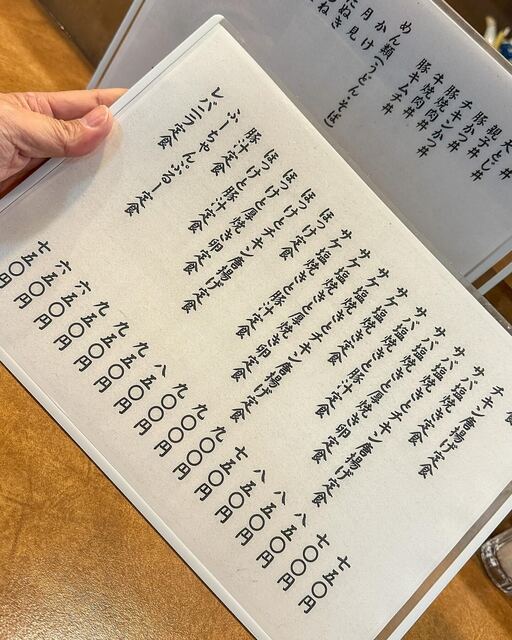 天丼
親子丼
豚かつ丼
チキンかつ丼
牛焼肉丼
豚キムチ丼
めん類(うどん・そば)
かけ
月見
たぬき
食
チキン唐揚げ定食 七五〇円
サバ塩焼き定食 七〇〇円
サバ塩焼きとチキン唐揚げ定食 八五〇円
サバ塩焼きと厚焼き卵定食 八五〇円
サバ塩焼きと豚汁定食 八五〇円
サケ塩焼き定食 七五〇円
サケ塩焼きとチキン唐揚げ定食 九〇〇円
サケ塩焼きと厚焼き卵定食 九〇〇円
サケ塩焼きと豚汁定食 九〇〇円
ほっけ定食 八〇〇円
ほっけとチキン唐揚げ定食 九五〇円
ほっけと厚焼き卵定食 九五〇円
ほっけと豚汁定食 九五〇円
豚汁定食 六五〇円
ふーちゃんぷるー定食 六五〇円
レバニラ定食 七五〇円